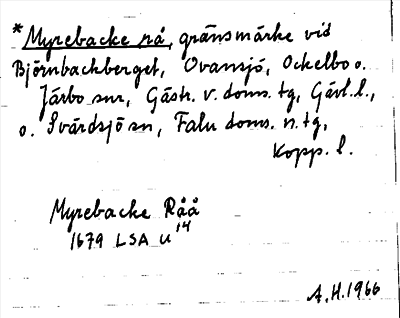 *Myrebacke rå, gränsmärke vid
Björnbackberget, Ovansjö, Ockelbo o.
Järbo snr, Gästr. v. doms. tg, Gävl. l.,
o. Svärdsjö sn, Falu doms. n. tg,
Kopp. l.
Myrebacke Råå
1679 LSA U 14
A.H. 1966